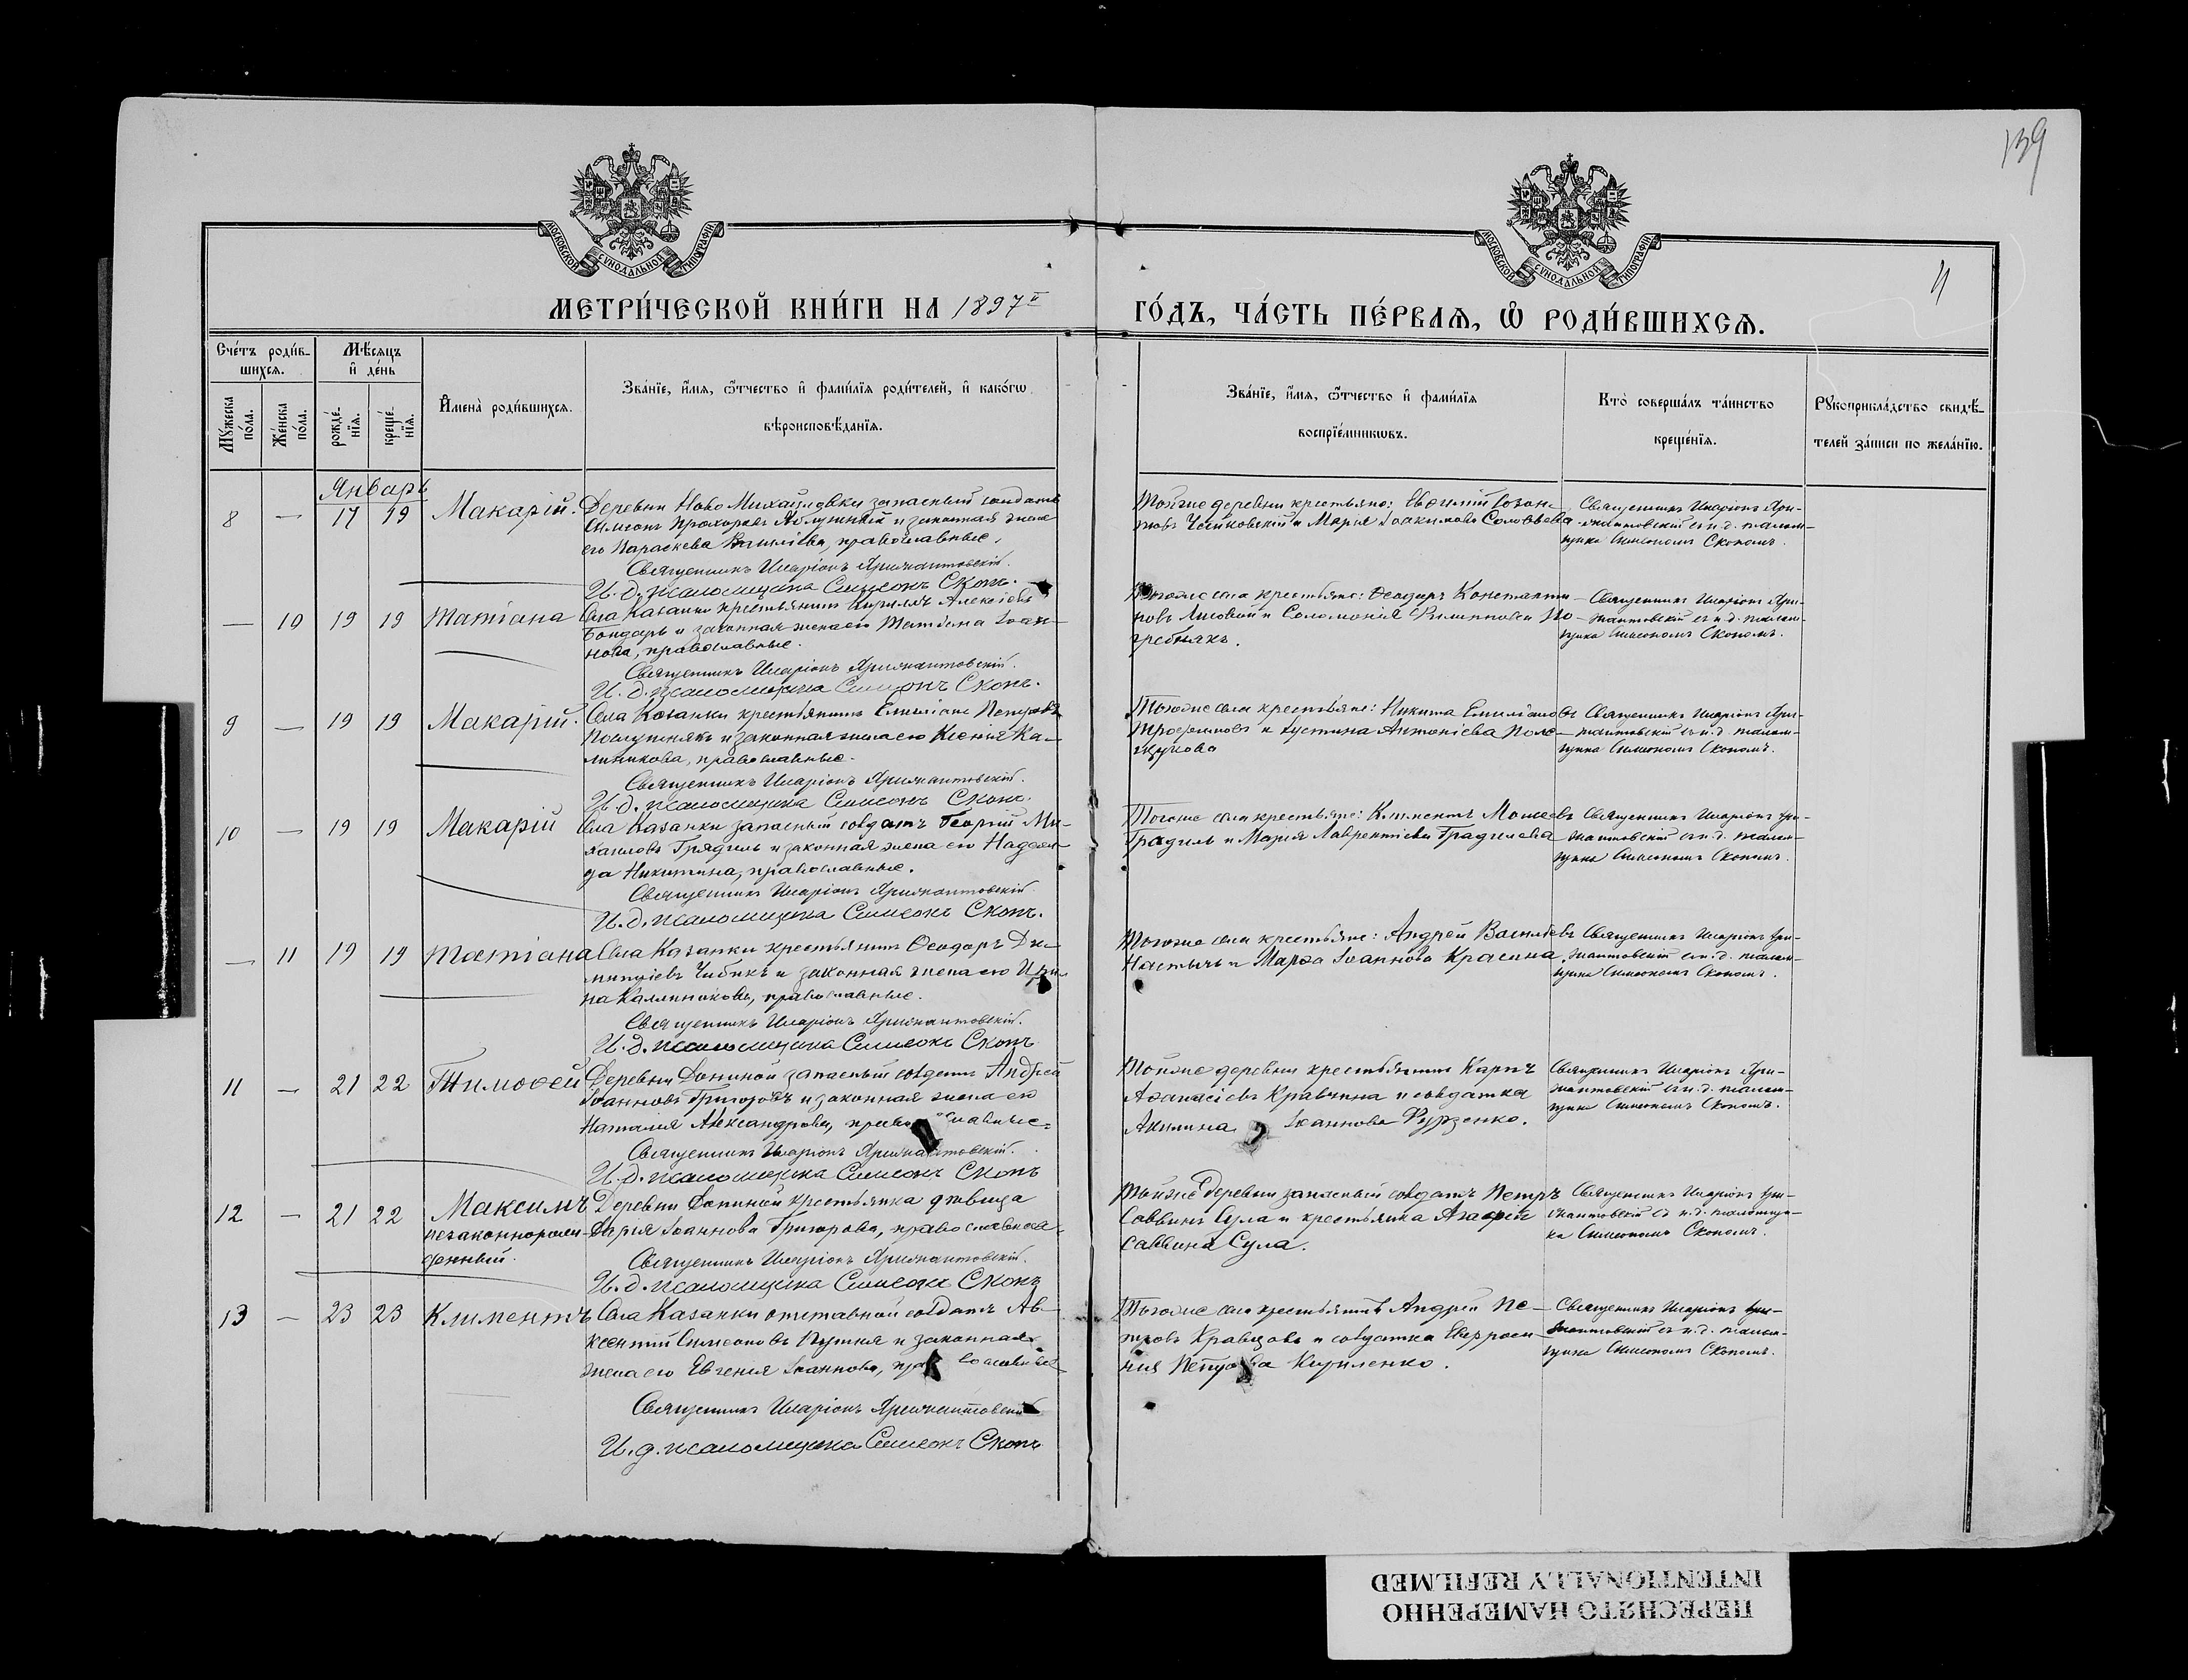 139
МОСКОВСКОЙ СѴНОДАЛЬНОЙ ТИПОГРАФІИ
МОСКОВСКОЙ СѴНОДАЛЬНОЙ ТИПОГРАФІИ
4
МЕТРИ́ЧЕСКОЙ КНИ́ГИ НА 1897
ГО́ДЪ, ЧА́СТЬ ПЕ́РВАѦ, Ѽ РОДИ́ВШИХСѦ.
Сче́тъ роди́в-
шихсѧ.
Мѣ́сѧцъ
и҆ де́нь
Мꙋ́жеска
по́ла.
Же́нска
по́ла.
рожде́-
нїѧ.
креще́-
нїѧ.
И҆мена̀ роди́вшихсѧ.
Зва́нїе, и҆́мѧ, ѻ҆́тчество и҆ фами́лїѧ роди́телей, и҆ како́гѡ
вѣроисповѣ́данїѧ.
Зва́нїе, и҆́мѧ, ѻ҆́тчество и҆ фами́лїѧ
воспрїе́мникѡвъ.
Кто̀ соверша́лъ та́инство
креще́нїѧ.
Рꙋкоприкла́дство свидѣ́-
телей за́писи по жела́нїю.
Январь
8 — 17 19 Макарій. Деревни Ново Михайловки запасный солдатъ
Симеонъ Прохоровъ и законная жена
его Параскева Василіева, православные.
Священникъ Иларіонъ
И. д. псаломщика Симеонъ Скопъ.
Тойже деревни крестьяне: Евѳимій Созон-
товъ Чайковскій и Марія Іоакимова Соловьева
Священникъ Иларіонъ
съ и. д. псалом-
щика Симеономъ Скопомъ.
— 10 19 19 Татіана Села Казанки крестьянинъ Кириллъ Алексіевъ
Бондарь и законная жена его Татіана Іоан-
нова, православные.
Священникъ Иларіонъ
И. д. псаломщика Симеонъ Скопъ.
Тогоже села крестьяне: Ѳеодоръ Константи-
новъ Лисовой и Соломонія Филиппова По-
гребнякъ.
Священникъ Иларіонъ
съ и. д. псалом-
щика Симеономъ Скопомъ.
9 — 19 19 Макарій. Села Казанки крестьянинъ Емиліанъ Петровъ
и законная жена его Ксенія Ка-
линикова, православные.
Священникъ Иларіонъ
И. д. псаломщика Симеонъ Скопъ.
Тогоже села крестьяне: Никита Емиліановъ
Трофимовъ и Іустина Антоніева
Священникъ Иларіонъ
съ и. д. псалом-
щика Симеономъ Скопомъ.
10 — 19 19 Макарій Села Казанки запасный солдатъ Георгій Ми-
хаиловъ Градиль и законная жена его Надеж-
да Никитина, православные.
Священникъ Иларіонъ
И. д. псаломщика Симеонъ Скопъ.
Тогоже села крестьяне: Климентъ
Градиль и Марія Лаврентіева Градилева
Священникъ Иларіонъ
съ и. д. псалом-
щика Симеономъ Скопомъ.
— 11 19 19 Татіана Села Казанки крестьянинъ Ѳеодоръ Ди-
митріевъ Чибикъ и законная жена его Ири-
на Каллиникова, православные.
Священникъ Иларіонъ
И. д. псаломщика Симеонъ Скопъ
Тогоже села крестьяне: Андрей Василіевъ
и Марѳа Іоаннова Красина
Священникъ Иларіонъ
съ и. д. псалом-
щика Симеономъ Скопомъ.
11 — 21 22 Тимоѳей Деревни Дониной запасный солдатъ Андрей
Іоанновъ Григоровъ и законная жена его
Наталія Александрова, православные.
Священникъ Иларіонъ
И. д. псаломщика Симеонъ Скопъ
Тойже деревни крестьянинъ Карпъ
Аѳанасіевъ Кравчина и солдатка
Акилина Іоаннова Фурзенко.
Священникъ Иларіонъ
съ и. д. псалом-
щика Симеономъ Скопомъ.
12 — 21 22 Максимъ Деревни Дониной крестьянка дѣвица
незаконнорож- Дарія Іоаннова Григорова, православная.
денный.
Священникъ Иларіонъ
И. д. псаломщика Симеонъ Скопъ
Тойже деревни запасный солдатъ Петръ
Саввинъ Сула и крестьянка Агафія
Саввина Сула.
Священникъ Иларіонъ
съ и. д. псаломщи-
ка Симеономъ Скопомъ.
13 — 23 23 Климентъ Села Казанки отставной солдатъ Ав-
ксентій Симеоновъ и законная
жена его Евгенія Іоаннова, православные
Священникъ Иларіонъ
И. д. псаломщика Симеонъ Скопъ
Тогоже села крестьянинъ Андрей Пе-
тровъ Кравцовъ и солдатка Евфроси-
нія Петрова Кириленко.
Священникъ Иларіонъ
съ и. д. псалом-
щика Симеономъ Скопомъ.
ПЕРЕСНЯТО НАМЕРЕННО
INTENTIONALLY REFILMED